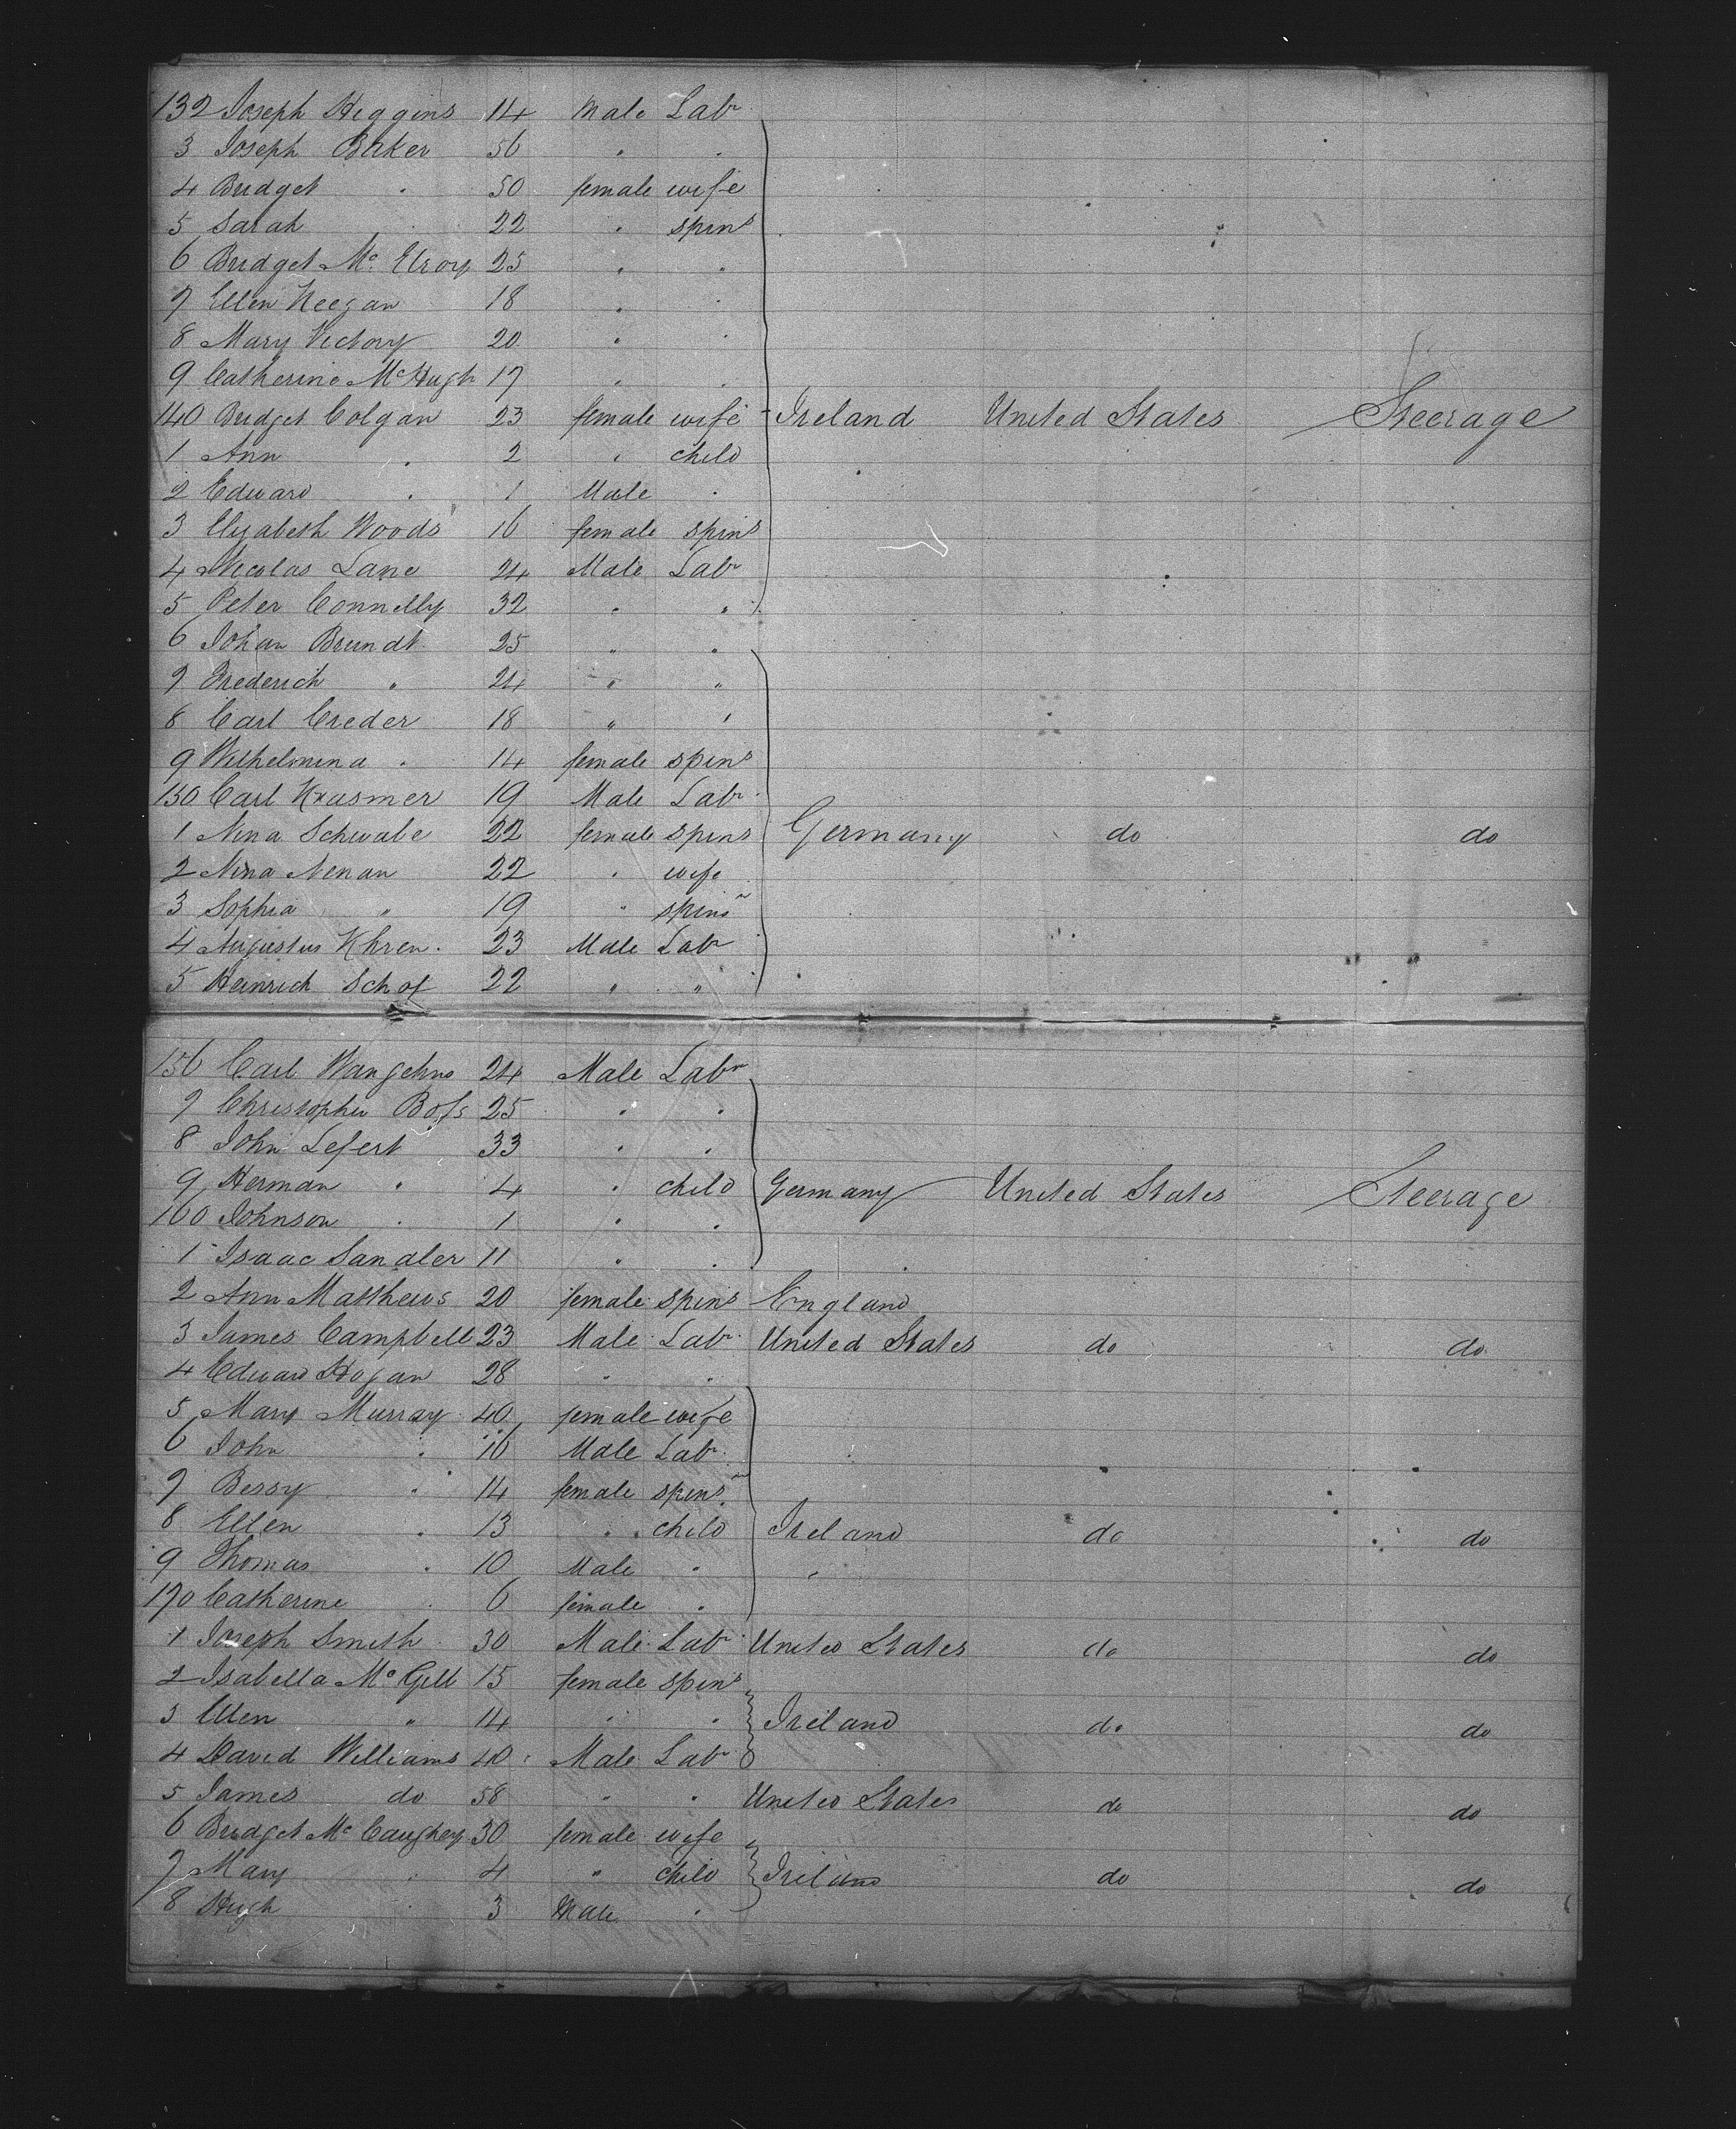 132 Joseph Higgins 14 Male Labr
3 Joseph Baker 56 " "
4 Bridget " 50 female wife
5 Sarah " 22 " spins
6 Bridget Mc Elroy 25 " "
7 Ellen Keegan 18 " "
8 Mary Victory 20 " "
9 Catherine McHugh 17 " "
140 Bridget Colgan 23 female wife Ireland United States Steerage
1 Ann " 2 " child
2 Edward " 1 Male "
3 Elizabeth Woods 16 female spins
4 Nicolas Lane 24 Male Labr
5 Peter Connelly 32 " "
6 Johan Brundt 25 " "
7 Frederich " 24 " "
8 Carl Creder 18 " "
9 Wilhelmina " 14 female spins
150 Carl Krasmer 19 Male Labr
1 Nina Schwabe 22 female spins Germany do do
2 Nina Nenan 22 " wife
3 Sophia " 19 " spins
4 Augustus Khren 23 Male Labr
5 Heinrich Schof 22 " "
156 Carl 24 Male Labr
7 Christopher Bofs 25 " "
8 John Lefert 33 " "
9 Herman " 4 " child Germany United States Steerage
160 Johnson " 1 " "
1 Isaac Sandler 11 " "
2 Ann Matthews 20 female spins England
3 James Campbell 23 Male Labr United States do do
4 Edward Hogan 28 " "
5 Mary Murray 40 female wife
6 John " 16 Male Labr
7 Bessy " 14 female spins
8 Ellen " 13 " child Ireland do do
9 Thomas " 10 Male " "
170 Catherine " 6 female "
1 Joseph Smith 30 Male Labr United States do do
2 Isabella Mc Gill 15 female spins
3 Ellen " 14 " " Ireland do do
4 David Williams 40 Male Labr
5 James do 58 " " United States do do
6 Bridget Mc Caughey 30 female wife
7 Mary " 4 " child Ireland do do
8 Hugh " 3 Male "